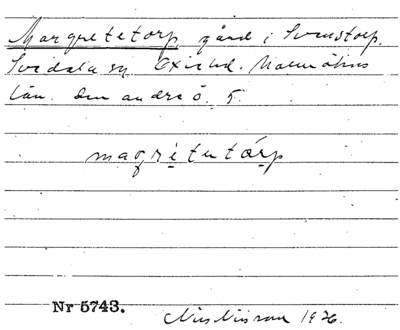 Margretetorp, gård i Svenstorp,
Svedala sn Oxie hd. Malmöhus
län. den andra ö. 5.
magrètetórp
Nr 5743.
Nils Nilsson 1926.